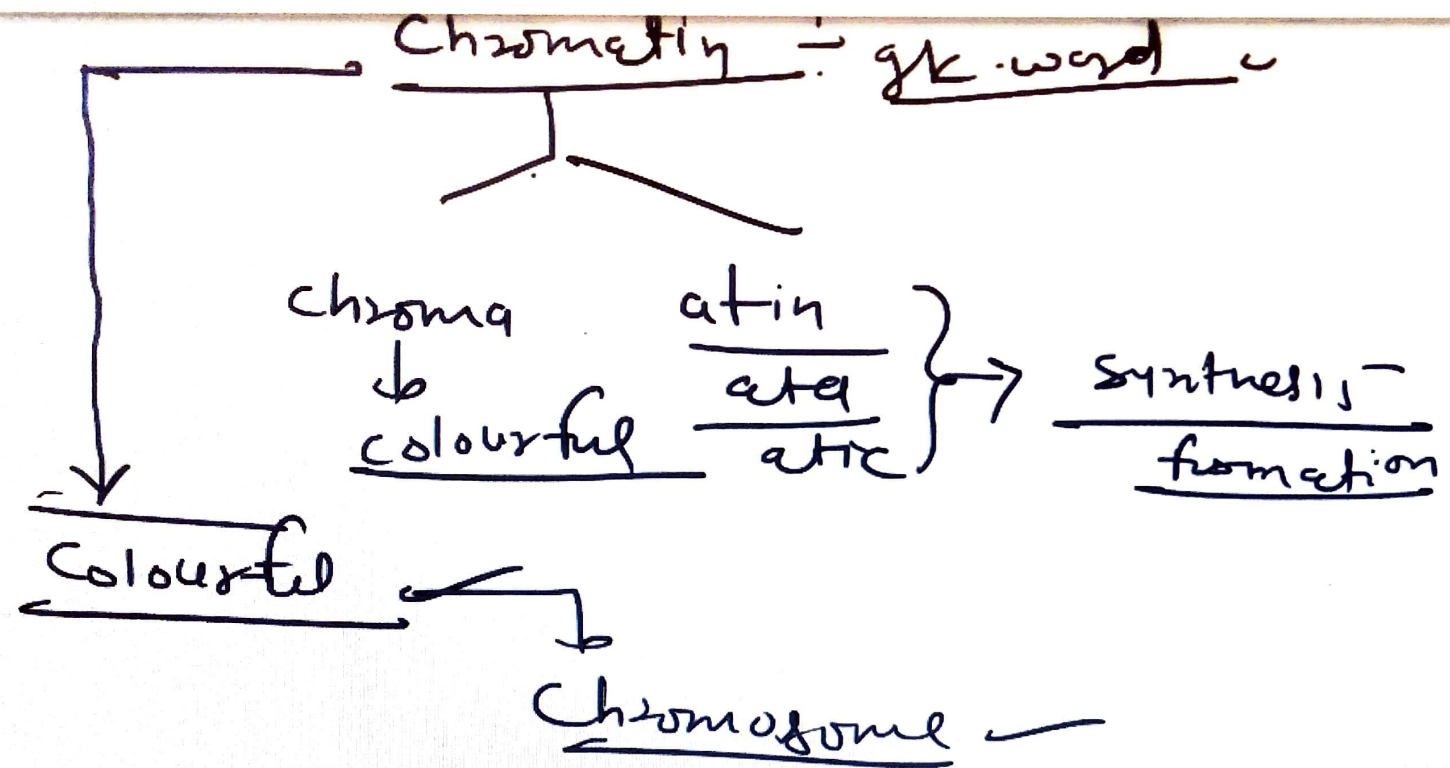 Chromatin :- gk. word
Chroma atin
ata
colourful atic
synthesis
formation
Colourful
Chromosome